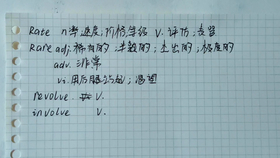 Rate n率,速度;价格,等级 V.评估;
Rare adj.稀有的;半熟的;杰出的;极度的
adv.非常
vi.用后腿站起;渴望
revolve V.
involve V.